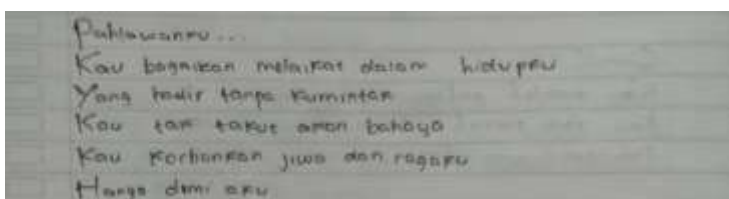 Pahlawanku...
Kau bagaikan melaikat dalam hidupku
Yang hadir tanpa kumintak
Kau tak takut akan bahaya
Kau korbankan jiwa dan ragaku
Hanya demi aku